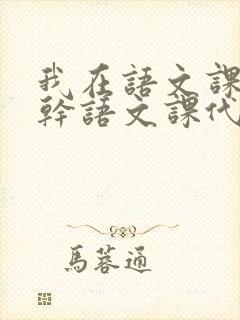 我在語文課
幹語文課代
馬蓉通